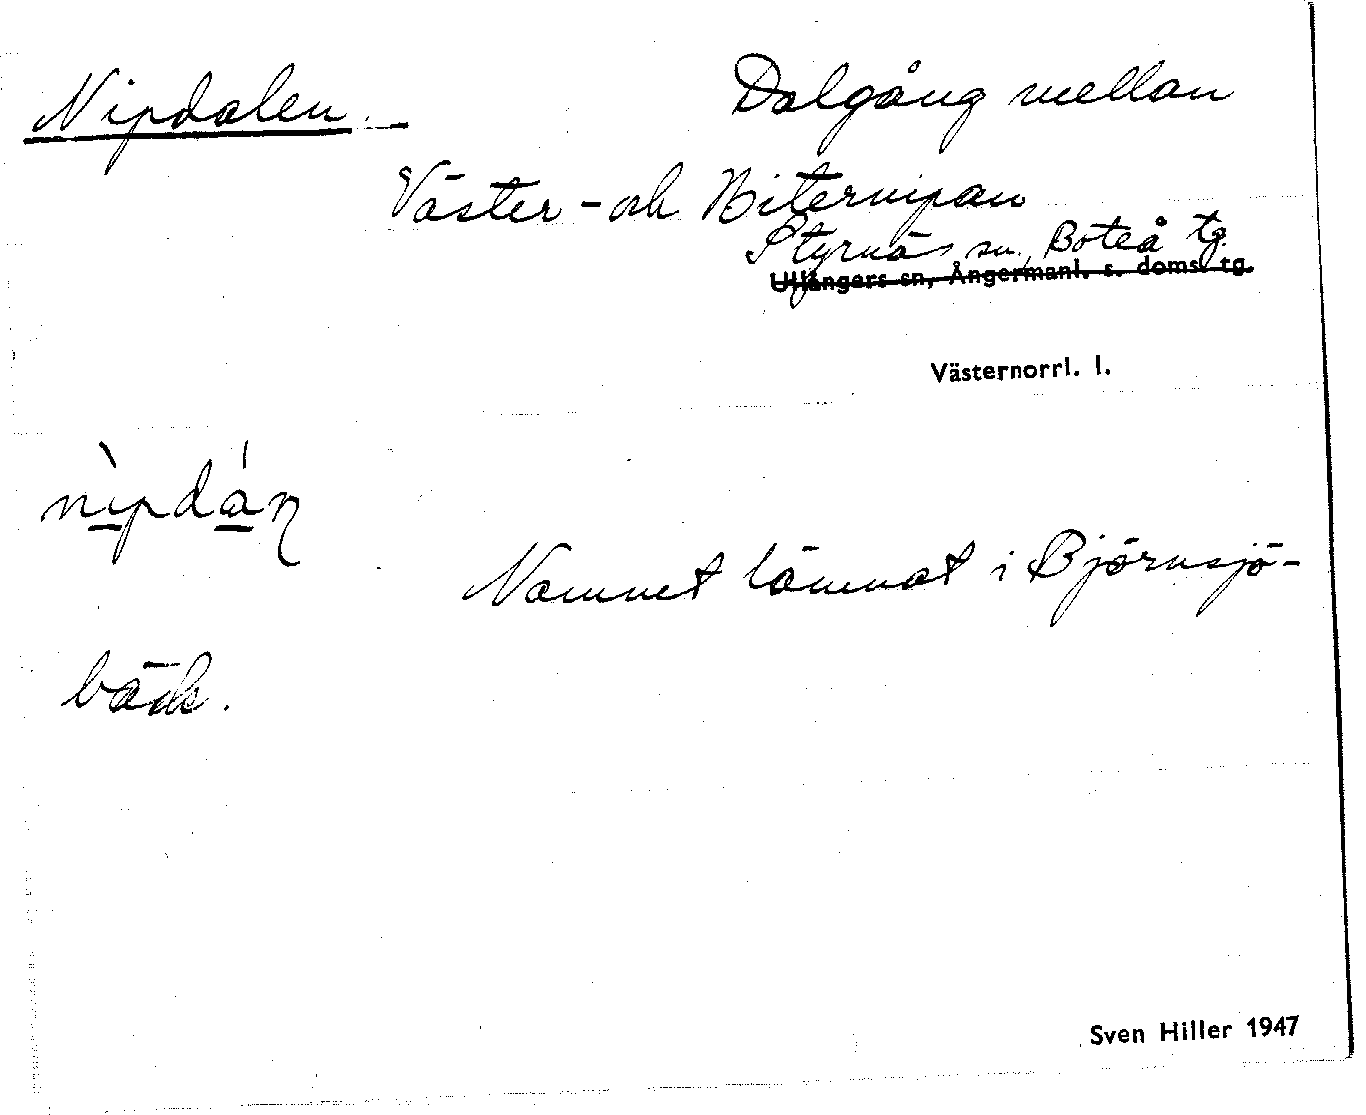 Nipdalen. Dalgång mellan
Väster- och Bitternipan
Styrnäs sn, Boteå tg.
Ullångers sn, Ångermanl. s. doms. tg.
Västernorrl. l.
nìpdán
Namnet lämnat i Björnsjö-
bäck.
Sven Hiller 1947